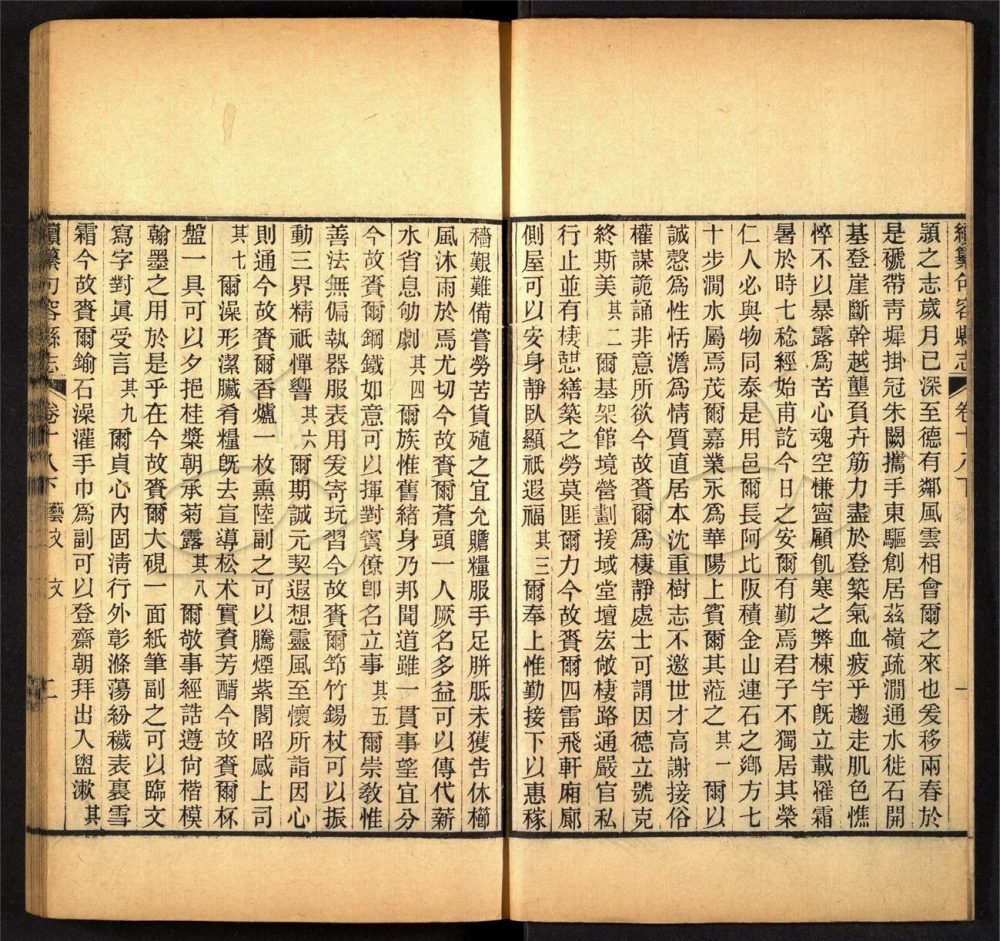 續纂句容縣志 卷十八下 一
潁之志歲月已深至德有鄰風雲相會爾之來也爰移兩春於
是褫帶靑墀掛冠朱闕攜手東驅創居茲嶺疏澗通水徙石開
基登崖斷幹越壟負卉筋力盡於登築氣血疲乎趨走肌色憔
悴不以暴露爲苦心魂空慊甯顧飢寒之弊棟宇旣立載罹霜
暑於時七稔經始甫訖今日之安爾有勤焉君子不獨居其榮
仁人必與物同泰是用邑爾長阿比阪積金山連石之鄉方七
十步澗水屬焉茂爾嘉業永爲華陽上賓爾其蒞之其一爾以
誠慤爲性恬澹爲情質直居本沈重樹志不邀世才高謝接俗
權謀詭誦非意所欲今故賚爾爲棲靜處士可謂因德立號克
終斯美其二爾基架館境營劃援域堂壇宏敞棲路通嚴官私
行止並有棲憇繕築之勞莫匪爾力今故賚爾四雷飛軒廂廊
側屋可以安身靜臥顯祇遐福其三爾奉上惟勤接下以惠稼
穡艱難備嘗勞苦貨殖之宜允贍糧服手足胼胝未獲告休櫛
風沐雨於焉尤切今故賚爾蒼頭一人厥名多益可以傳代薪
水省息劬劇其四爾族惟舊緒身乃邦聞道雖一貫事望宜分
今故賚爾鋼鐵如意可以揮對賓僚卽名立事其五爾崇敎惟
善法無偏執器服表用爰寄玩習今故賚爾筇竹錫杖可以振
動三界精祇憚響其六爾期誠元契遐想靈風至懷所詣因心
則通今故賚爾香爐一枚熏陸副之可以騰煙紫閣昭感上司
其七爾澡形潔臟肴糧旣去宣導松术實賚芳醑今故賚爾杯
盤一具可以夕挹桂漿朝承菊露其八爾敬事經誥遵尙楷模
翰墨之用於是乎在今故賚爾大硯一面紙筆副之可以臨文
寫字對眞受言其九爾貞心內固淸行外彰滌蕩紛穢表裏雪
霜今故賚爾鍮石澡灌手巾爲副可以登齋朝拜出入盥漱其
續纂句容縣志 卷十八下 藝文 文